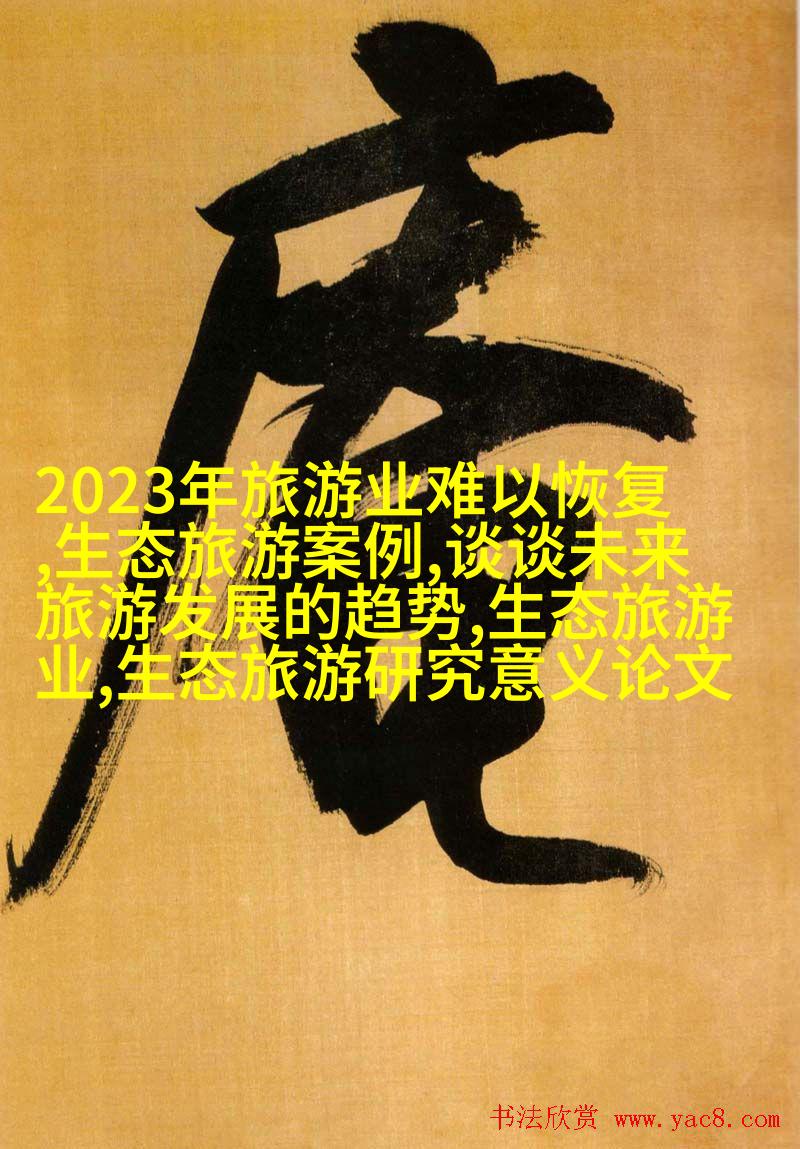 庵
2023年旅游业难以恢复
,生态旅游案例,谈谈未来
旅游发展的趋势,生态旅游
业,生态旅游研究意义论文
书法欣赏 www.yac8.com